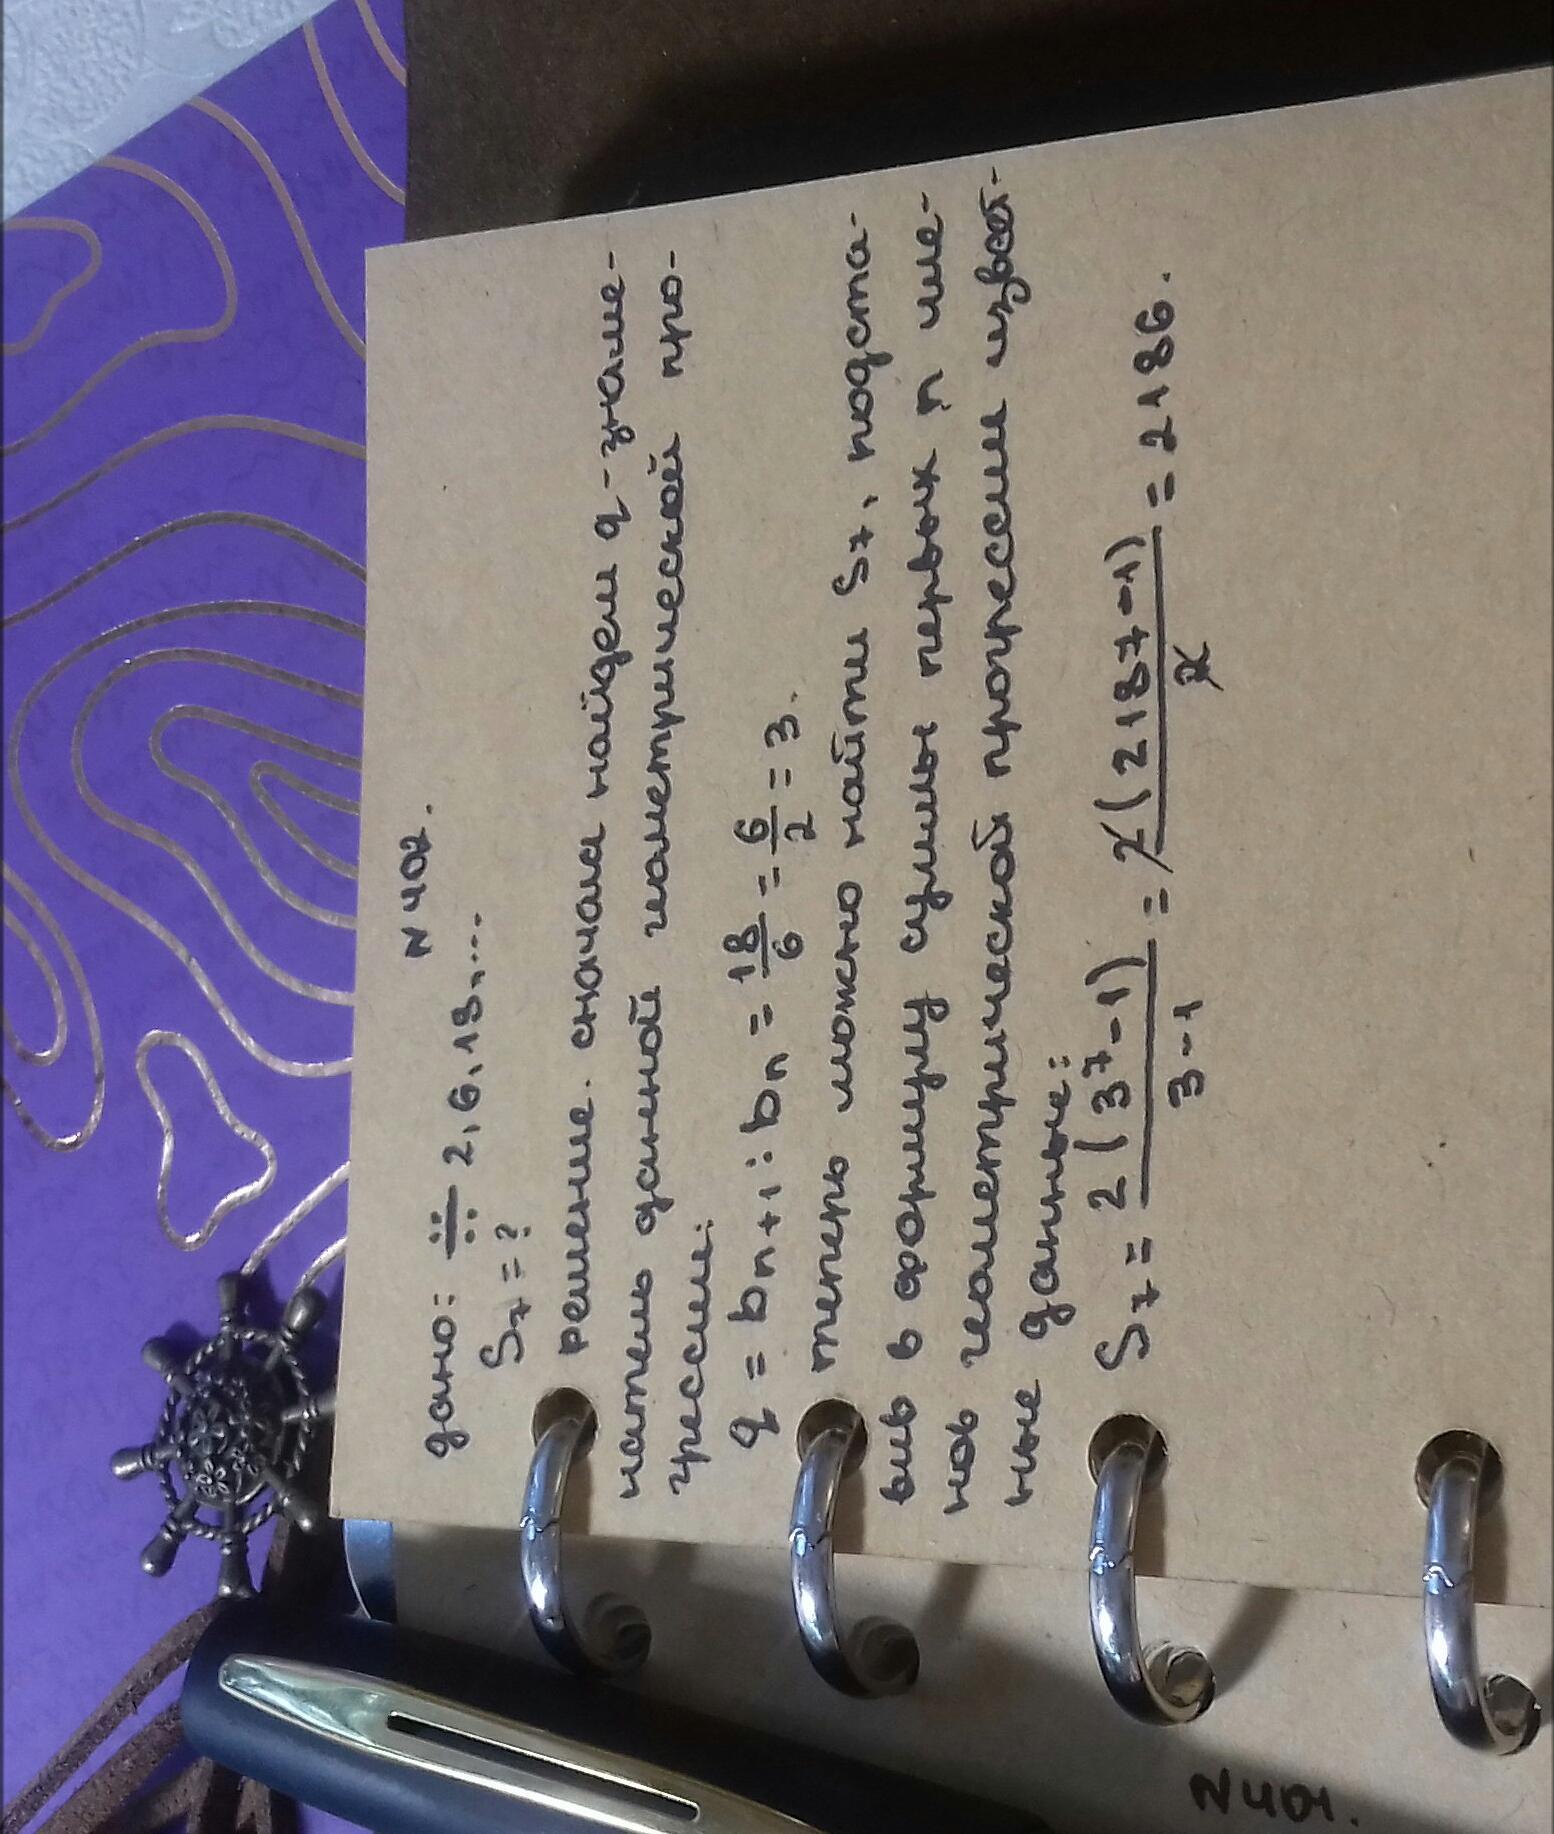 N 402.
дано: ∺ 2, 6, 18, ....
S₇ = ?
решение. сначала найдем q - знаме-
натель данной геометрической про-
грессии:
q = bₙ₊₁ : bₙ = 18/6 = 6/2 = 3.
теперь можно найти S₇, подста-
вив в формулу суммы первых n чле-
нов геометрической прогрессии извест-
ные данные:
S₇ = 2(3⁷-1)/3-1 = 2(2187-1)/2 = 2186.
N 401.